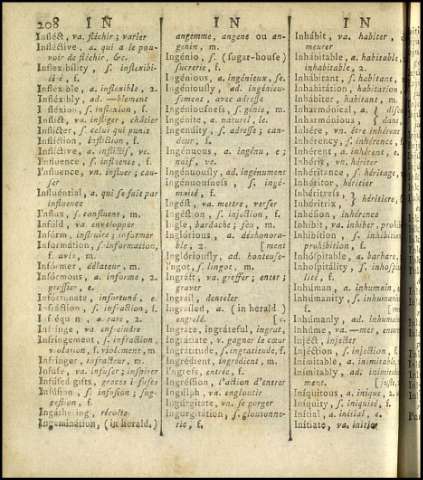 208 I N
I N
I N
Infléct, va. fléchir; varier
Infléctive, a. qui a le pou-
voir de fléchir, &c.
Inflexibility, s. inflexibi-
lité, f.
Inflexible, a. inflexible, 2.
Infléxibly, ad. —blement
Infléxion, s. inflexion, f.
Inflíct, va. infliger, châtier
Inflícter, s. celui qui punit
Inflíction, infliction, f.
Inflíctive, a. inflictif, ve.
Influence, s. influence, f.
Influence, vn. influer; cau-
ser
Influéntial, a. qui se fait par
influence
Influx, s. confluent, m.
Infóld, va. envelopper
Infórm, instruire; informer
Information, s. information,
f. avis, m.
Infórmer, délateur, m.
Infórmous, a. informe, 2.
grossier, e.
Infórtunate, infortuné, e.
Infráction, s. infraction, f.
a. rare,
Infrínge, va. enfreindre
Infríngement, s. infraction,
violation, f. violement, m.
Infrínger, infracteur, m.
Infúse, va. infuser; inspirer
Infúsed gifts, graces infuses
Infúsion, s. infusion; sug-
gestion, f.
Ingáthering, récolte
Ingeminátion, (in herald.)
angemme, angene ou an-
genin, m.
Ingénio, s. (sugar-house)
sucrerie, f.
Ingénious, a. ingénieux, se.
Ingéniously, ad. ingénieu-
sement, avec adresse
Ingéniousness, s. génie, m.
Ingénite, a. naturel, le.
Ingenúity, s. adresse; can-
deur, f.
Ingénuous, a. ingénu, e;
naïf, ve.
Ingénuously, ad. ingénument
Ingénuousness, s. ingé-
nuité, f.
Ingést, va. mettre, verser
Ingéstion, s. injection, f.
Ingle, bardache; feu, m.
Inglórious, a. déshonora-
ble, 2. [ment
Inglóriously, ad. honteuse-
Ingot, s. lingot, m.
Ingráft, va. greffer; enter;
graver
Ingráil, denteler
Ingráiled, a. (in herald)
engrelé.
Ingrate, ingráteful, ingrat,
Ingrátiate, v. gagner le cœur
Ingrátitude, s. ingratitude, f.
Ingrédient, ingrédient, m.
Ingress, entrée, f.
Ingréssion, l'action d'entrer
Ingúlph, va. engloutir
Ingúrgitate, vn. se gorger
Ingurgitátion, s. gloutonne-
rie, f.
Inhábit, va. habiter,
meurer
Inhábitable, a. habitable,
inhabitable, 2.
Inhábitant, s. habitant,
Inhabitátion, habitation,
Inhábiter, habitant, m.
Inharmónical, a.
Inharmónious,
Inhére, vn. être inhérent
Inhérency, s. inhérence, f.
Inhérent, a. inhérent, e.
Inhérit, vn. hériter
Inhéritance, s. héritage,
Inhéritor, héritier
Inhéritress,
Inhéritrix, } héritière,
Inhésion, inhérence
Inhíbit, va. inhiber, prohib
Inhibítion, s. inhibition,
prohibition, f.
Inhóspitable, a. barbare,
Inhospitálity, s. inhospi-
lité, f.
Inhúman, a. inhumain, e
Inhumánity, s. inhumanité
f.
Inhúmanly, ad. inhumain
Inhúme, va. —mer, enterr
Injéct, injecter
Injéction, s. injection, f.
Inímitable, a. inimitable,
Inímitably, ad. inimitable-
ment. [just,
Iníquitous, a. inique, 2.
Iníquity, s. iniquité, f.
Initial, a. initial, e.
Initiate, va. initier